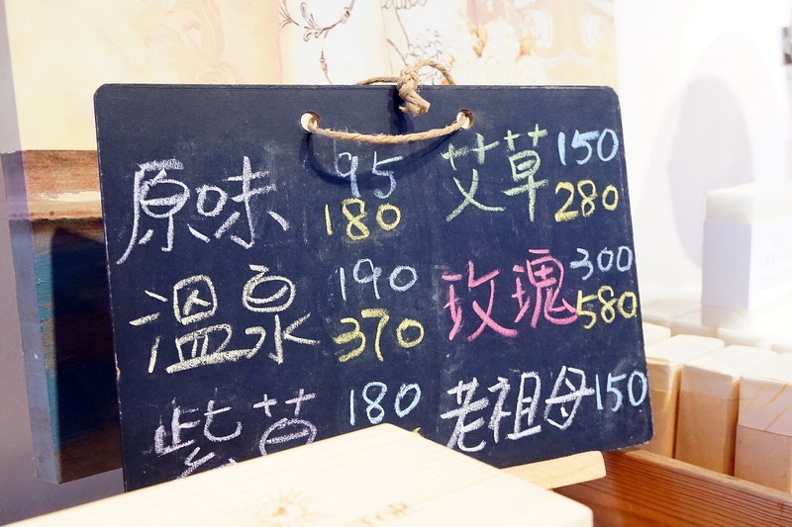 原味 95
180
艾草 150
280
溫泉 190
370
玫瑰 300
580
紫草 180
老祖母 150